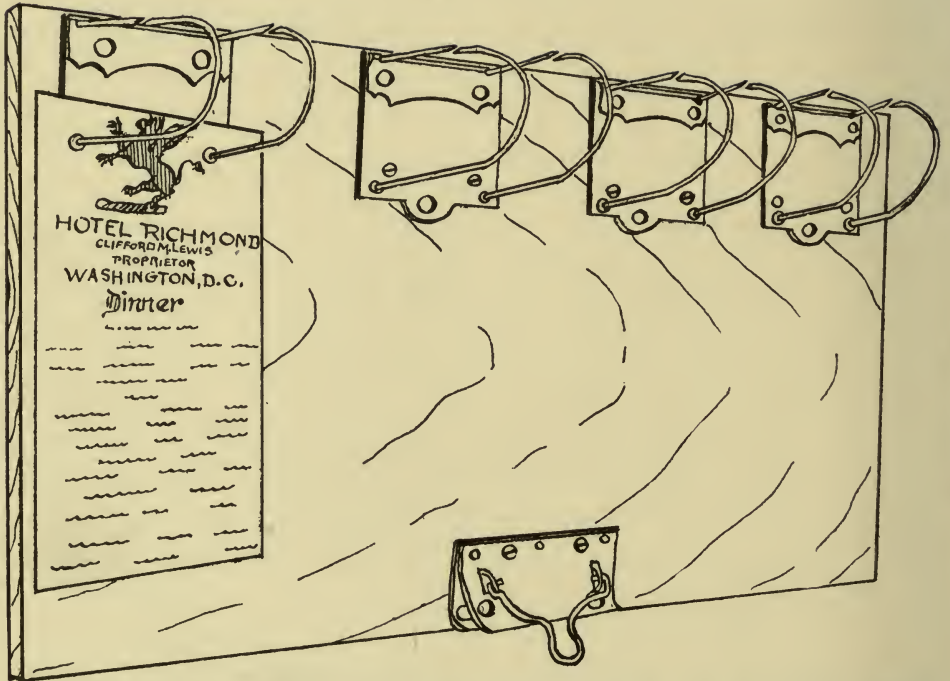 HOTEL RICHMOND
CLIFFORD M. LEWIS
PROPRIETOR
WASHINGTON, D.C.
Dinner